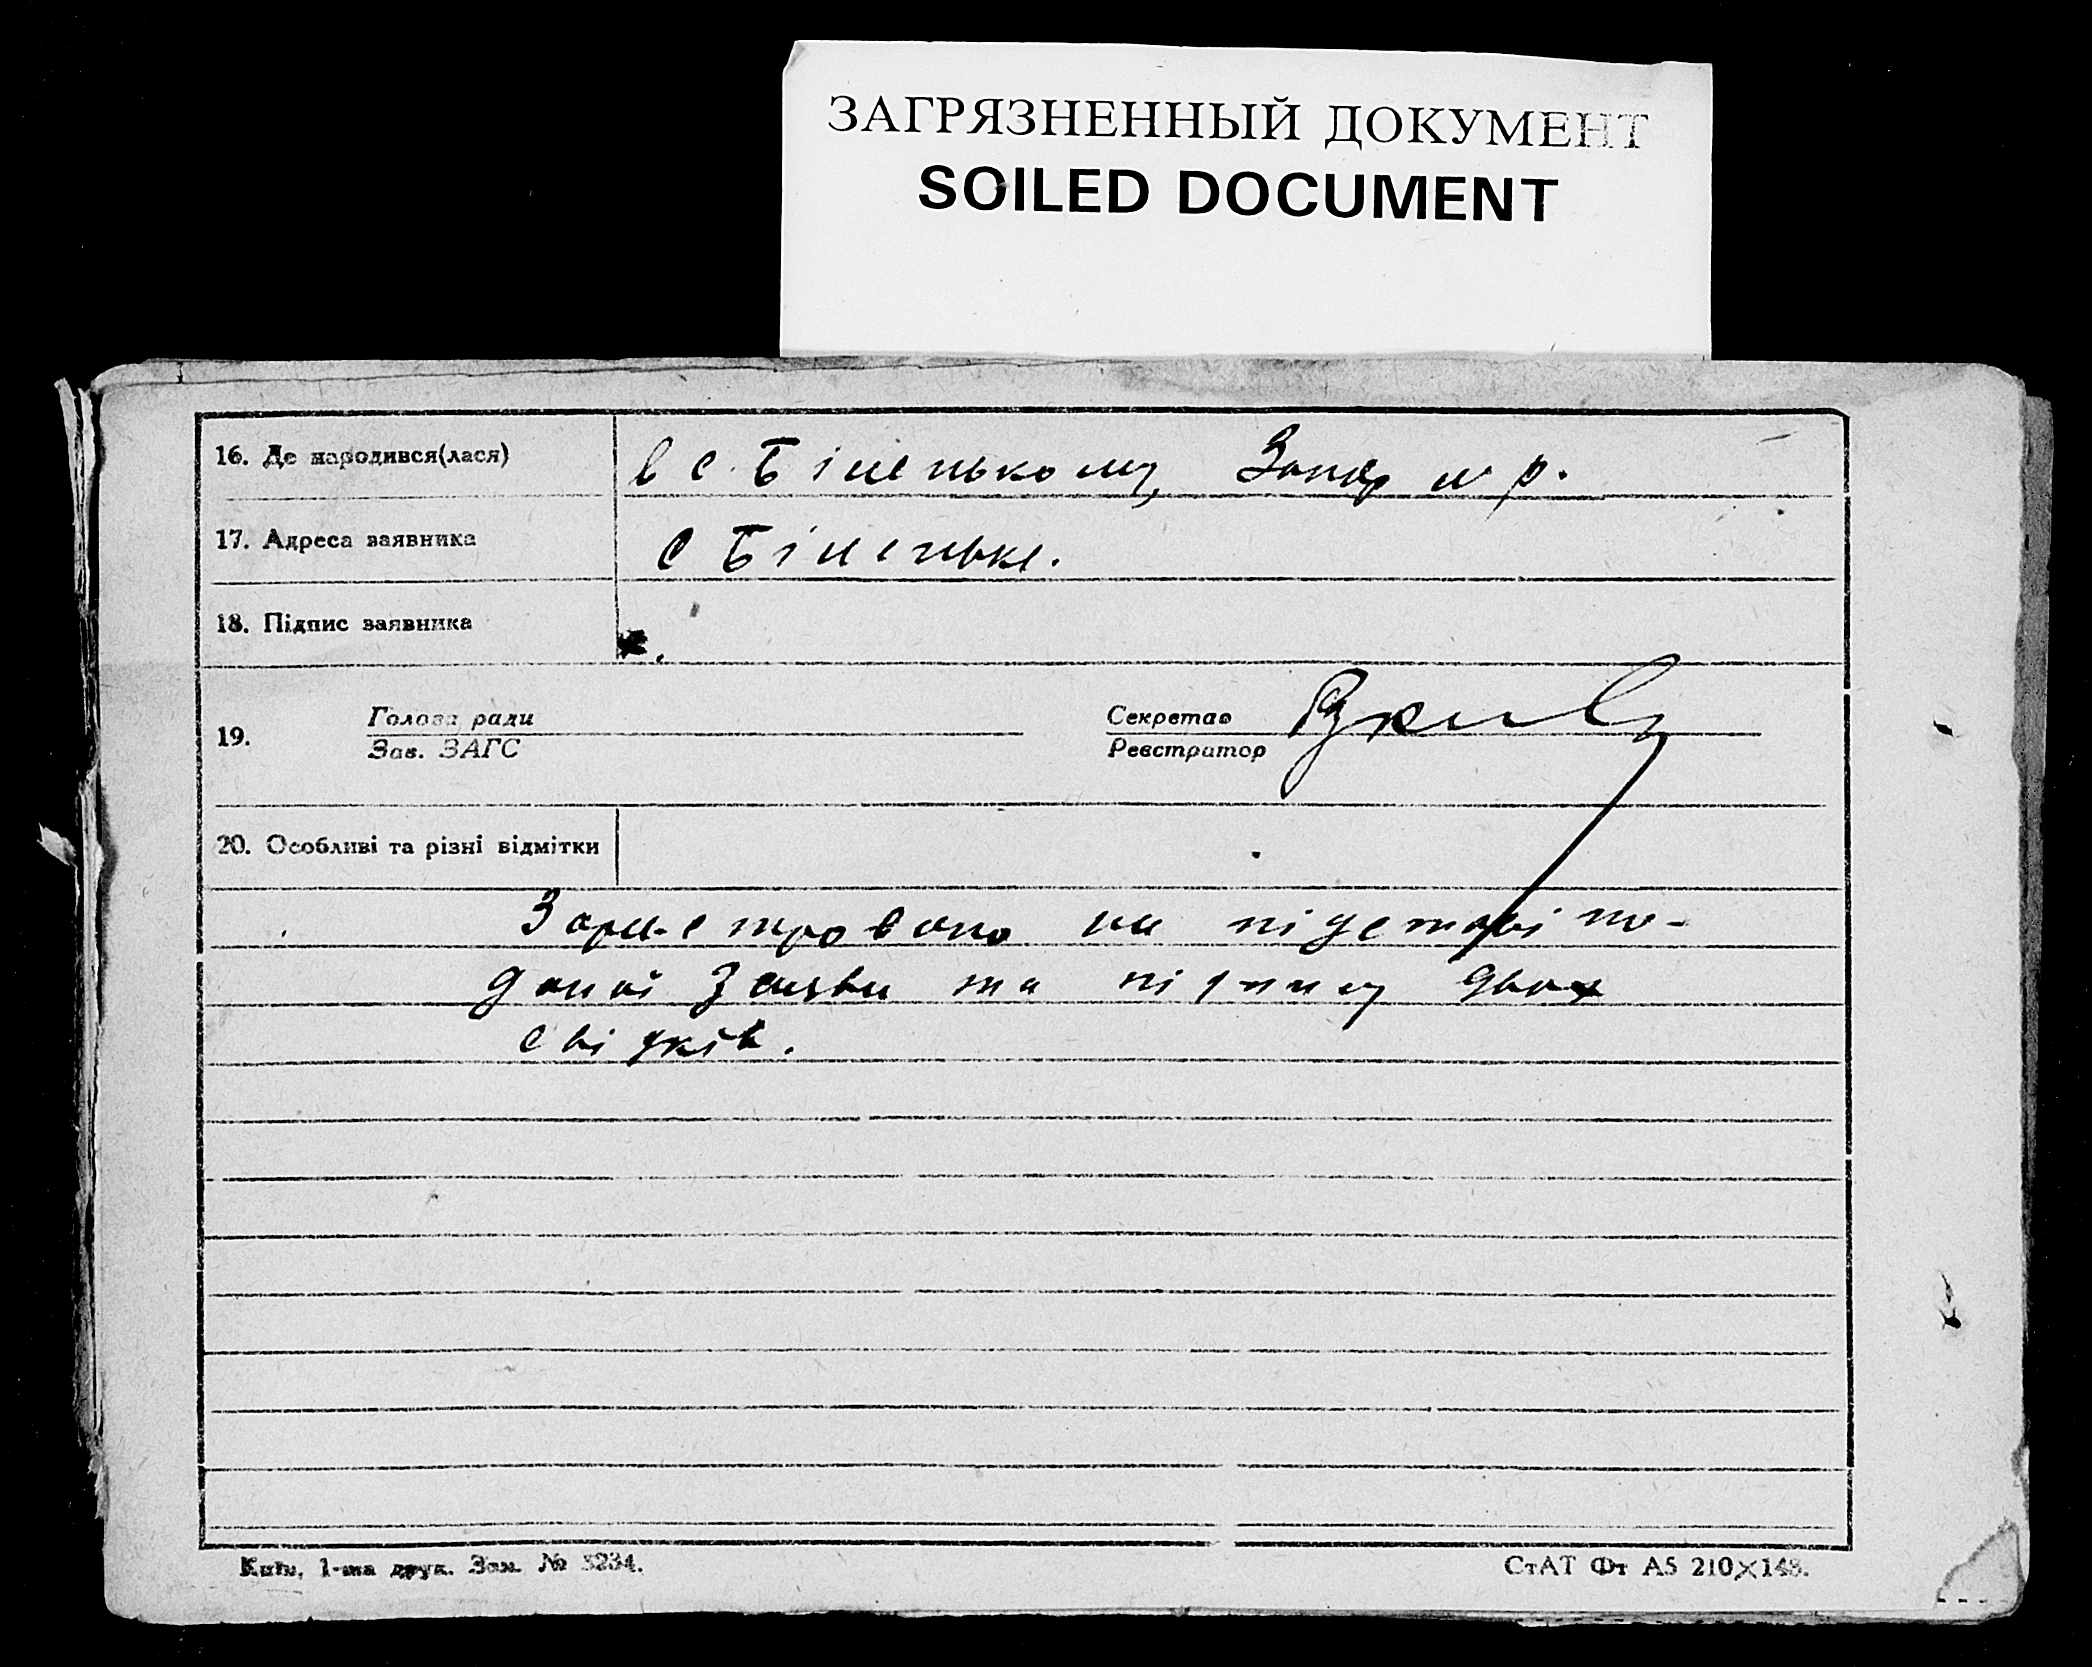 ЗАГРЯЗНЕННЫЙ ДОКУМЕНТ
SOILED DOCUMENT
16. Де народився(лася) в с. Біленькому, Запор р.
17. Адреса заявника с Біленьке.
18. Підпис заявника
19. Голова ради
Зав. ЗАГС
Секретар
Реєстратор
20. Особливі та різні відмітки
Зареєстровано на підставі по-
даної заяви та підпису двох
свідків.
Київ, 1-ша друк. Зам. № 3234.
СтАТ Фт А5 210×148.